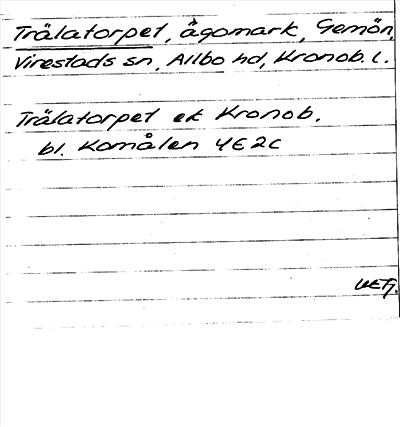 Trälatorpet, ägomark, Gemön,
Virestads sn, Allbo hd, Kronob. l.
Trälatorpet ek Kronob.
bl. Komålen 4E2c